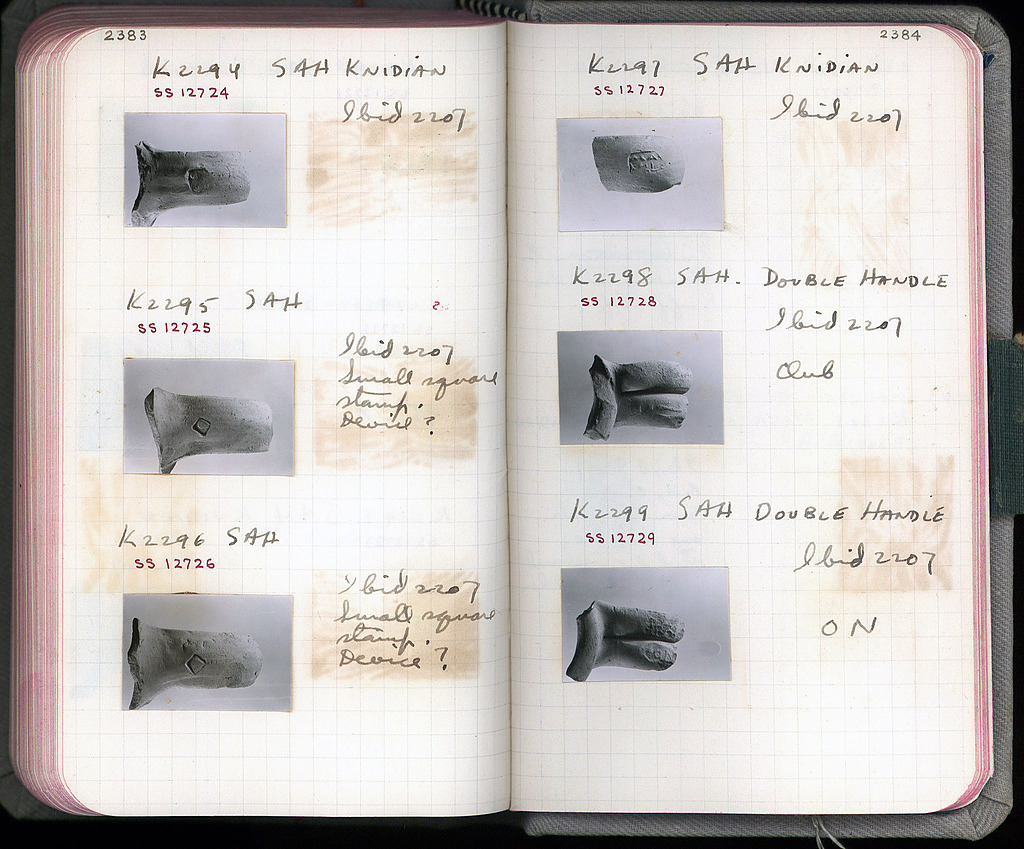 2383
K2294 SAH KNIDIAN
SS 12724
Ibid 2207
K2295 SAH
SS 12725
Ibid 2207
Small square
stamp.
Device?
K2296 SAH
SS 12726
Ibid 2207
Small square
stamp.
Device?
2384
K2297 SAH KNIDIAN
SS 12727
Ibid 2207
K2298 SAH. DOUBLE HANDLE
SS 12728
Ibid 2207
Club
K2299 SAH DOUBLE HANDLE
SS 12729
Ibid 2207
ON